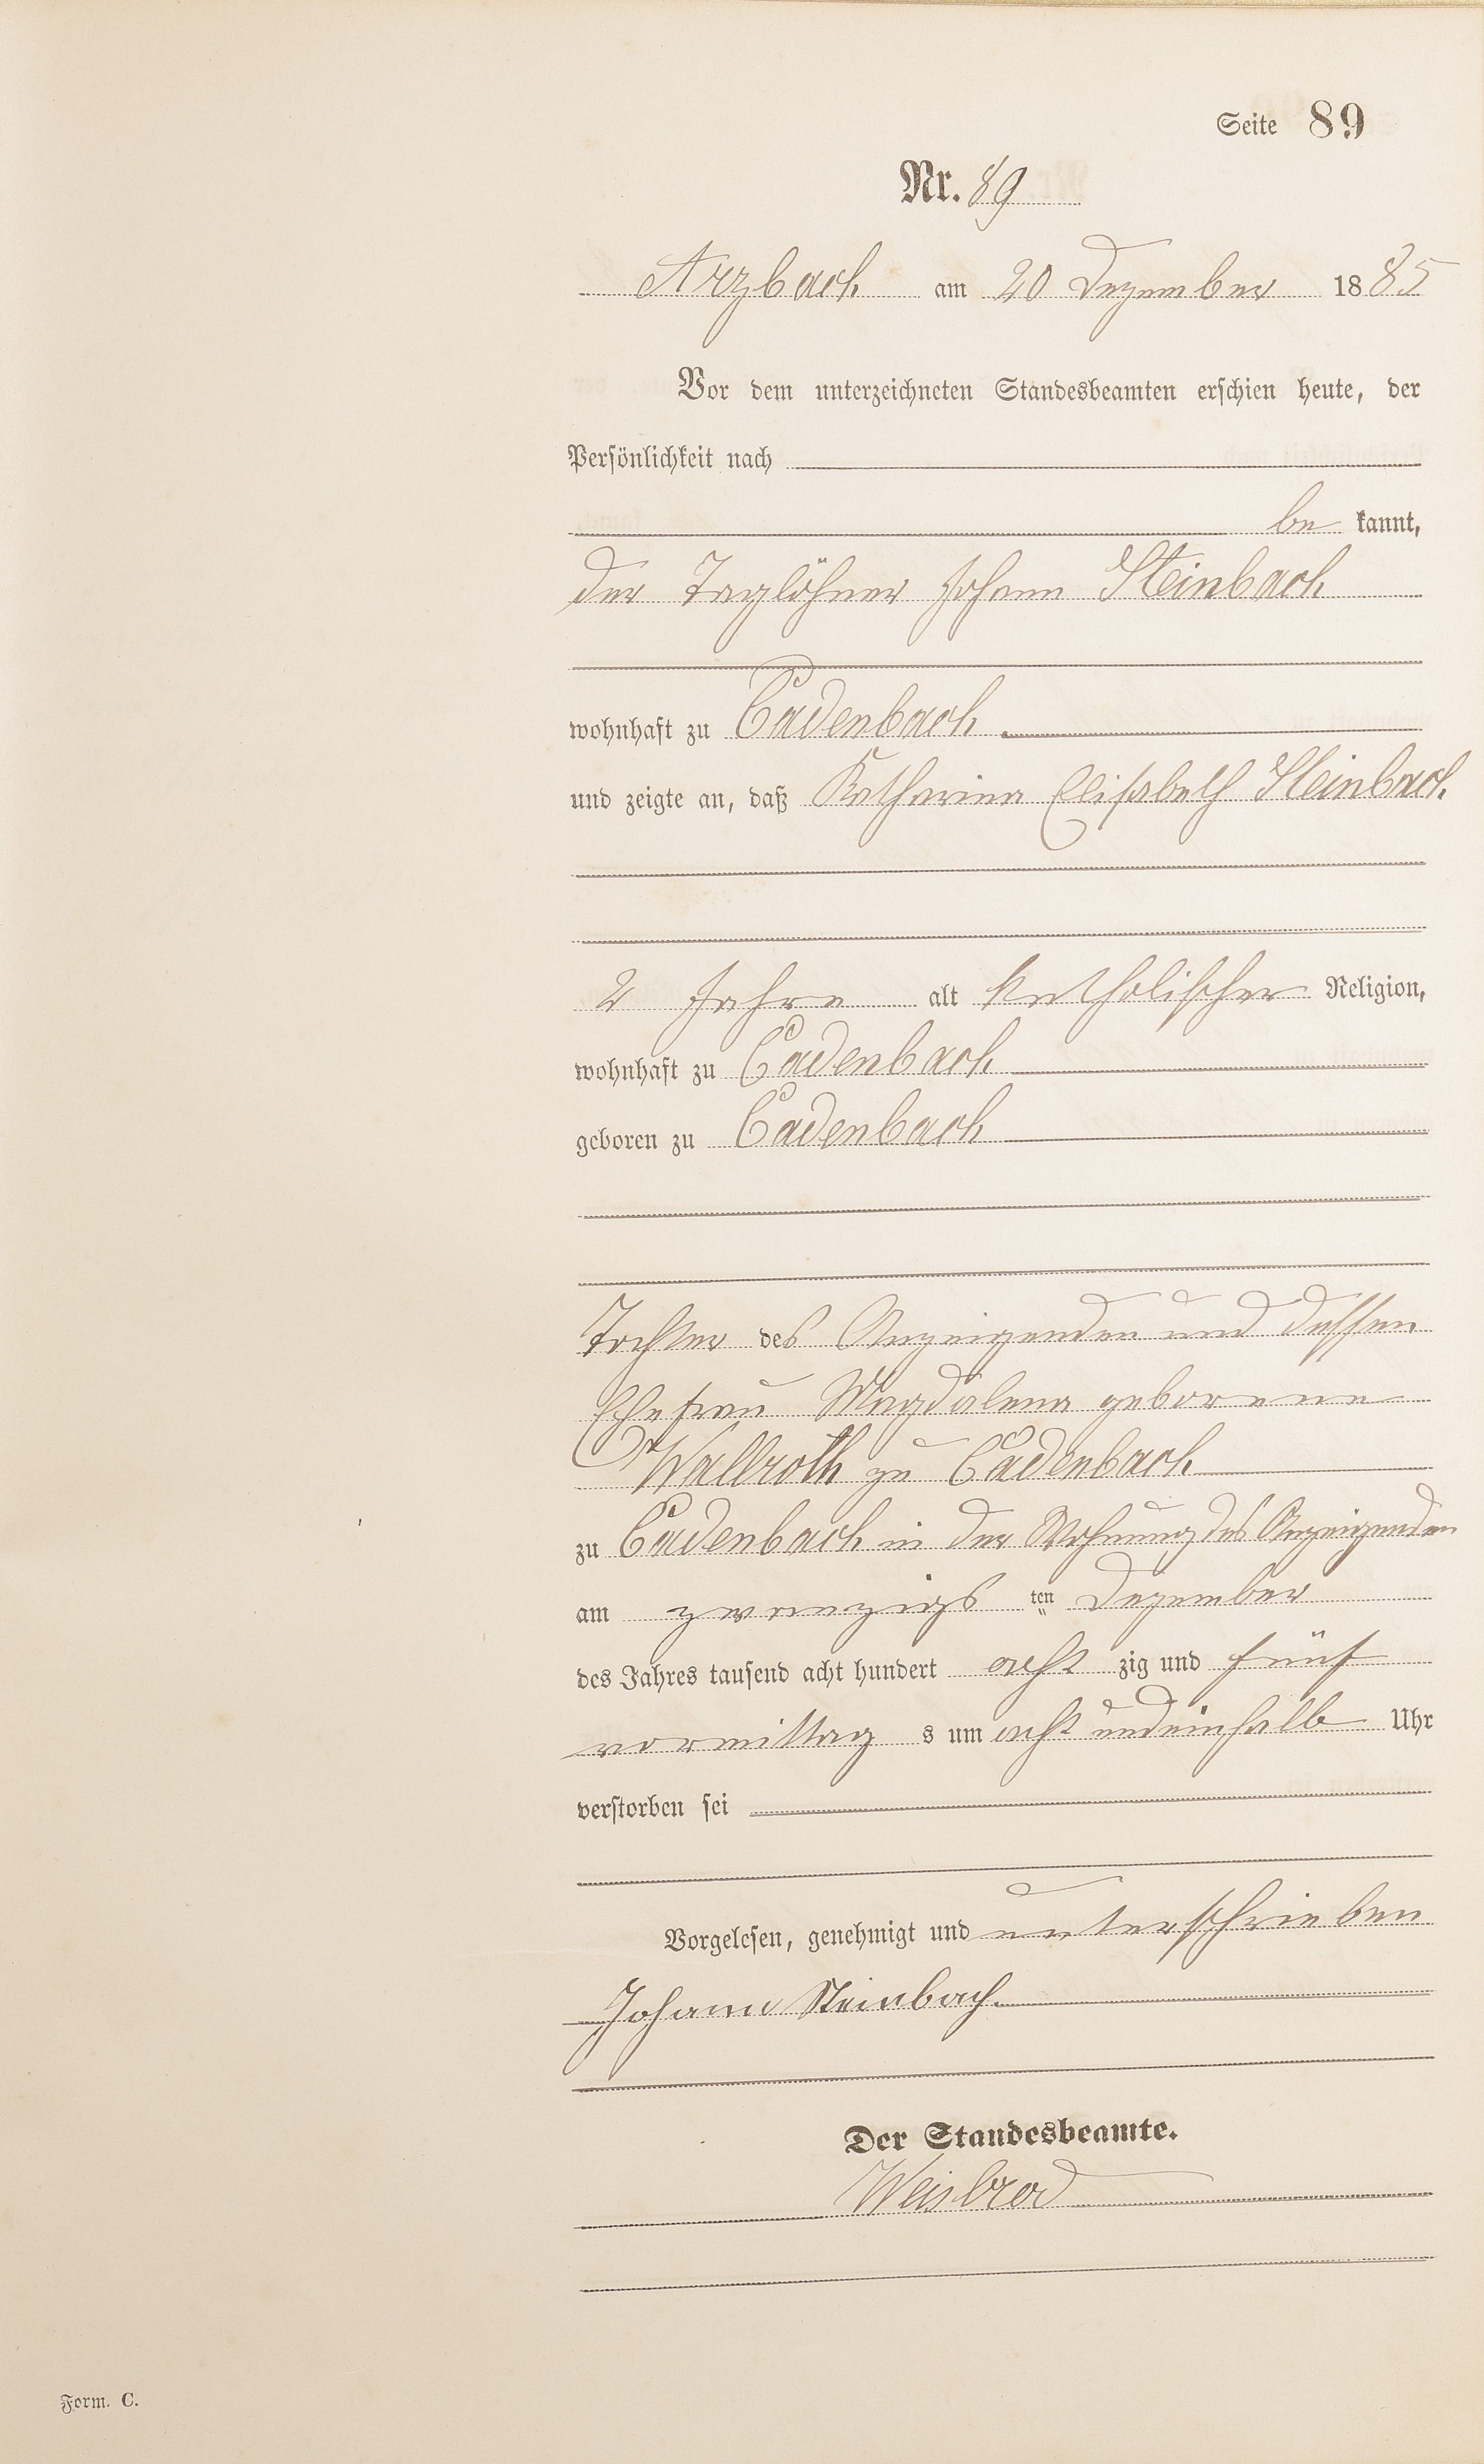 Seite 89
Nr. 89
Arzbach am 20 Dezember 1885
Vor dem unterzeichneten Standesbeamten erschien heute, der
Persönlichkeit nach
be kannt,
der Taglöhner Johann Steinbach
wohnhaft zu Cadenbach
und zeigte an, daß Katharina Elisabeth Steinbach
2 Jahre alt katholischer Religion,
wohnhaft zu Cadenbach
geboren zu Cadenbach
Tochter des Anzeigenden und dessen
Ehefrau Magdalena geborene
Wallroth zu Cadenbach
zu Cadenbach in der Wohnung des Anzeigenden
am zwanzigs ten Dezember
des Jahres tausend acht hundert acht zig und fünf
vormittag s um acht undeinhalb Uhr
verstorben sei
Vorgelesen, genehmigt und unterschrieben
Johann Steinbach.
Der Standesbeamte.
Weisbrod
Form. C.